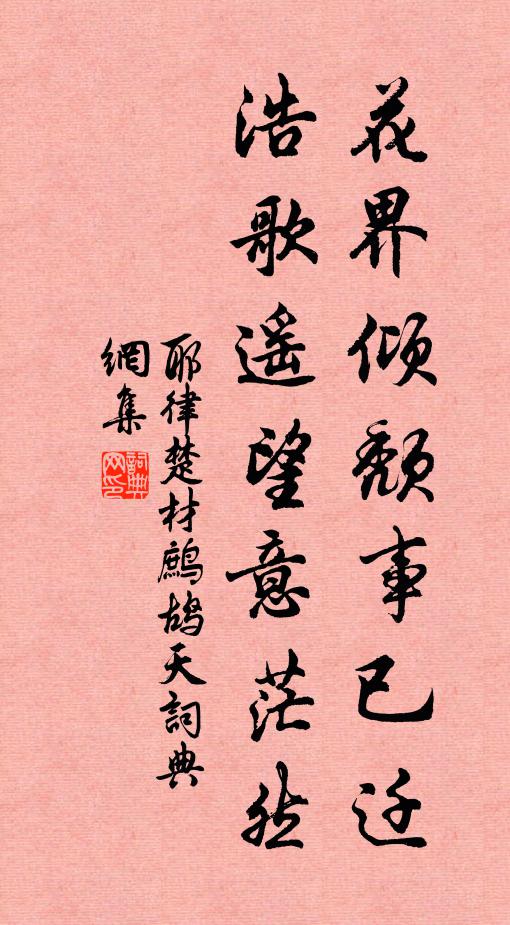 花界倾颓事已迁
浩歌遥望意茫然
耶律楚材鹧鸪天詞典
網集
詞典网印